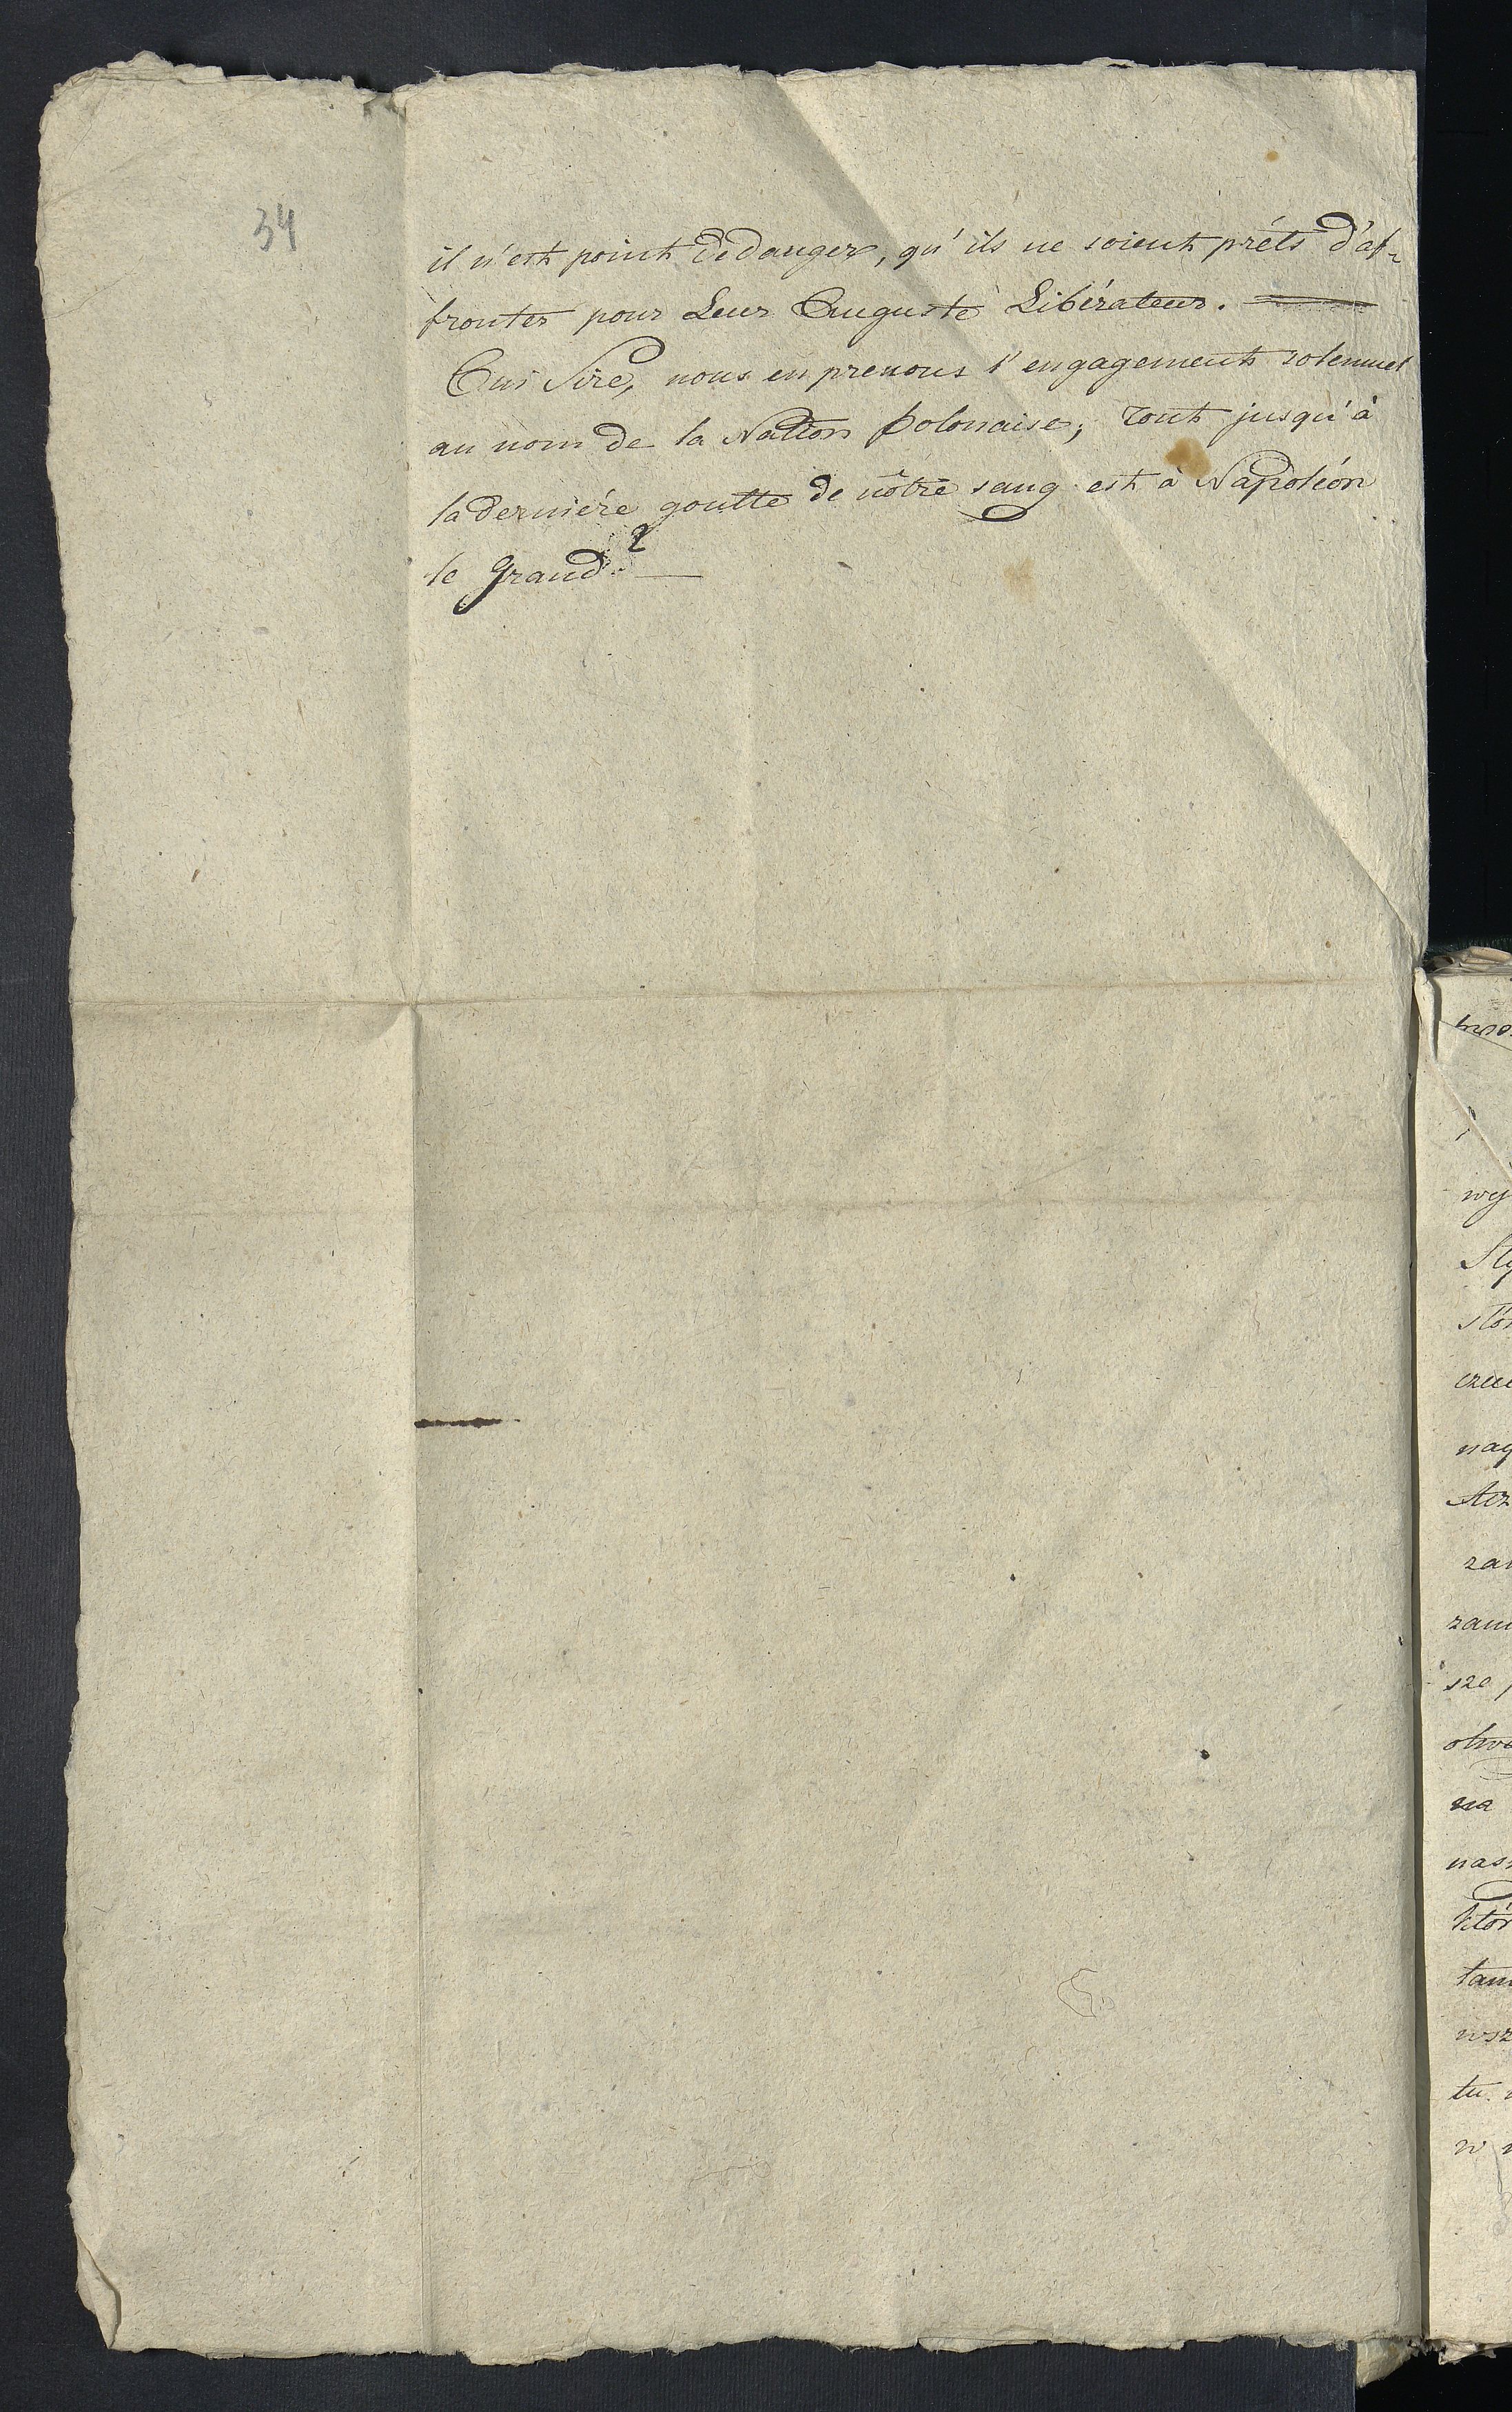 34
il n'est point de danger, qu'ils ne soient préts d'af-
fronter pour Leur Auguste Libérateur.
Oui Sire, nous en prenons l'engagement solemnel
au nom de la Nation Polonaise; tout jusqu'à
la derniére goutte de nôtre sang est à Napoléon
le Grand.
wy
czu
nay
zam
na
tam
wsz
tu
w